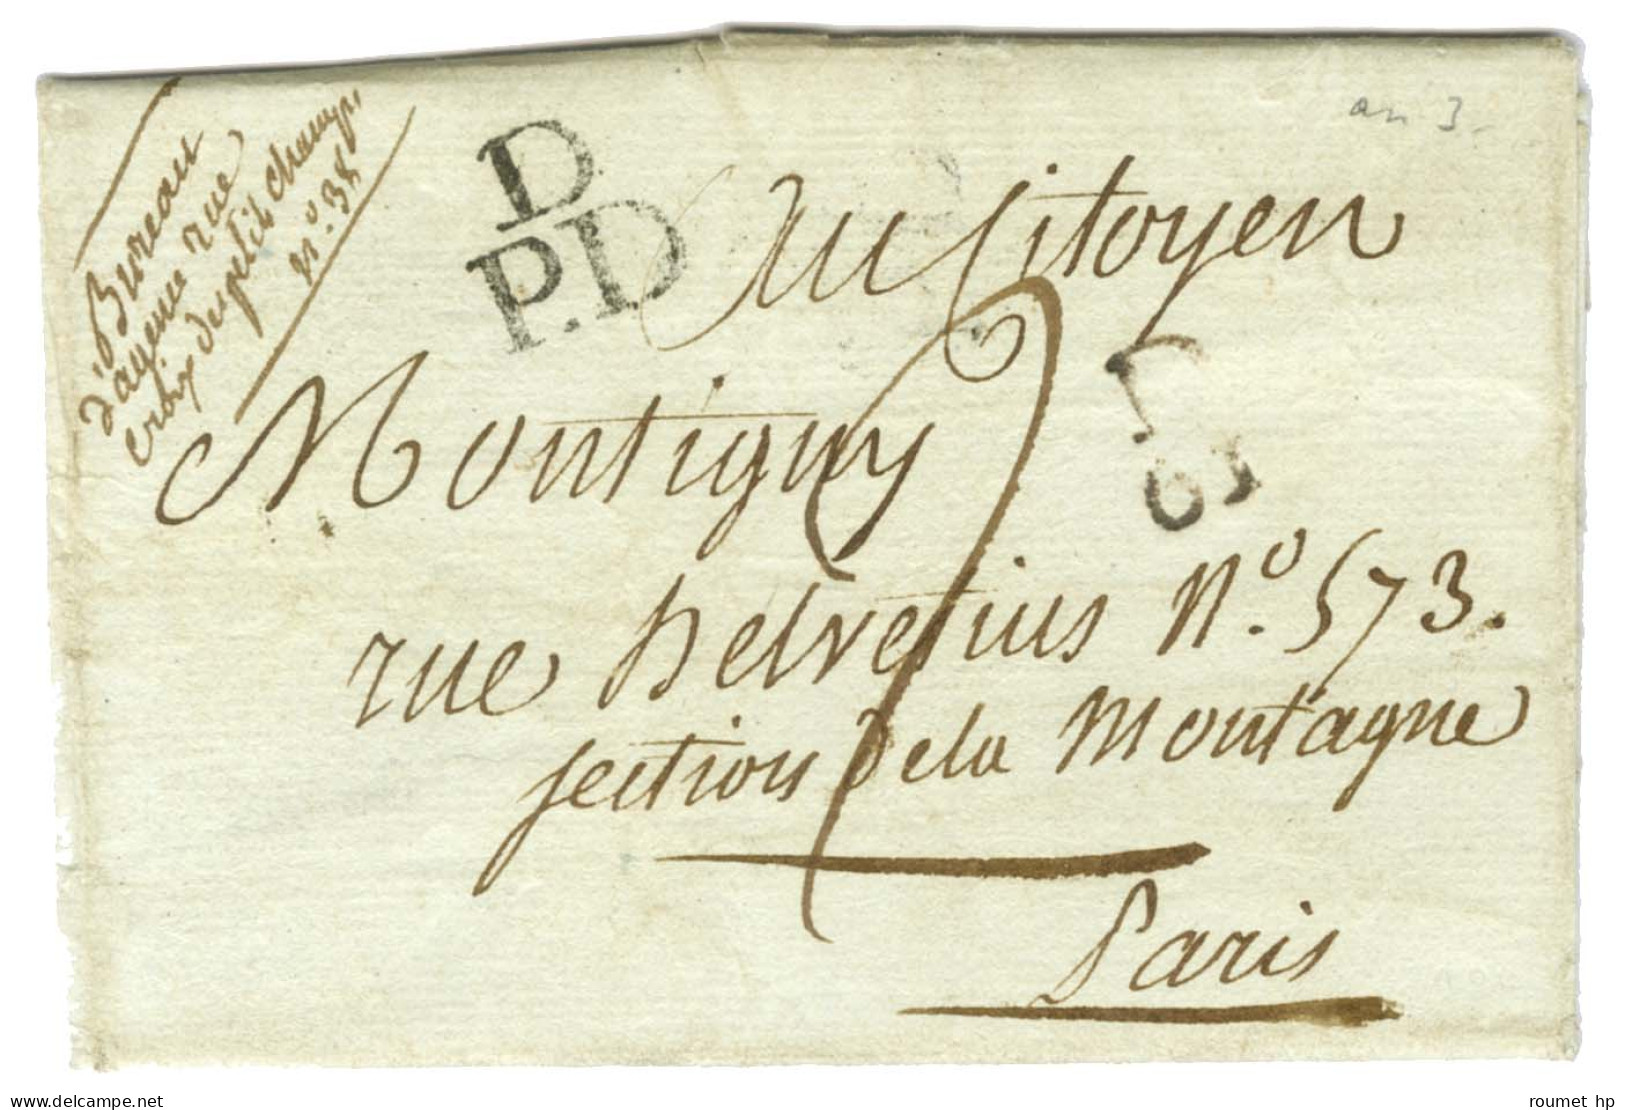 an 3.
Bureau
d'agence rue
croix des petits champs
n.º 38
D
P.D
Au Citoyen
Montigny
rue helvetius n.º 573.
section de la Montagne
Paris
roumet hp
www.delcampe.net